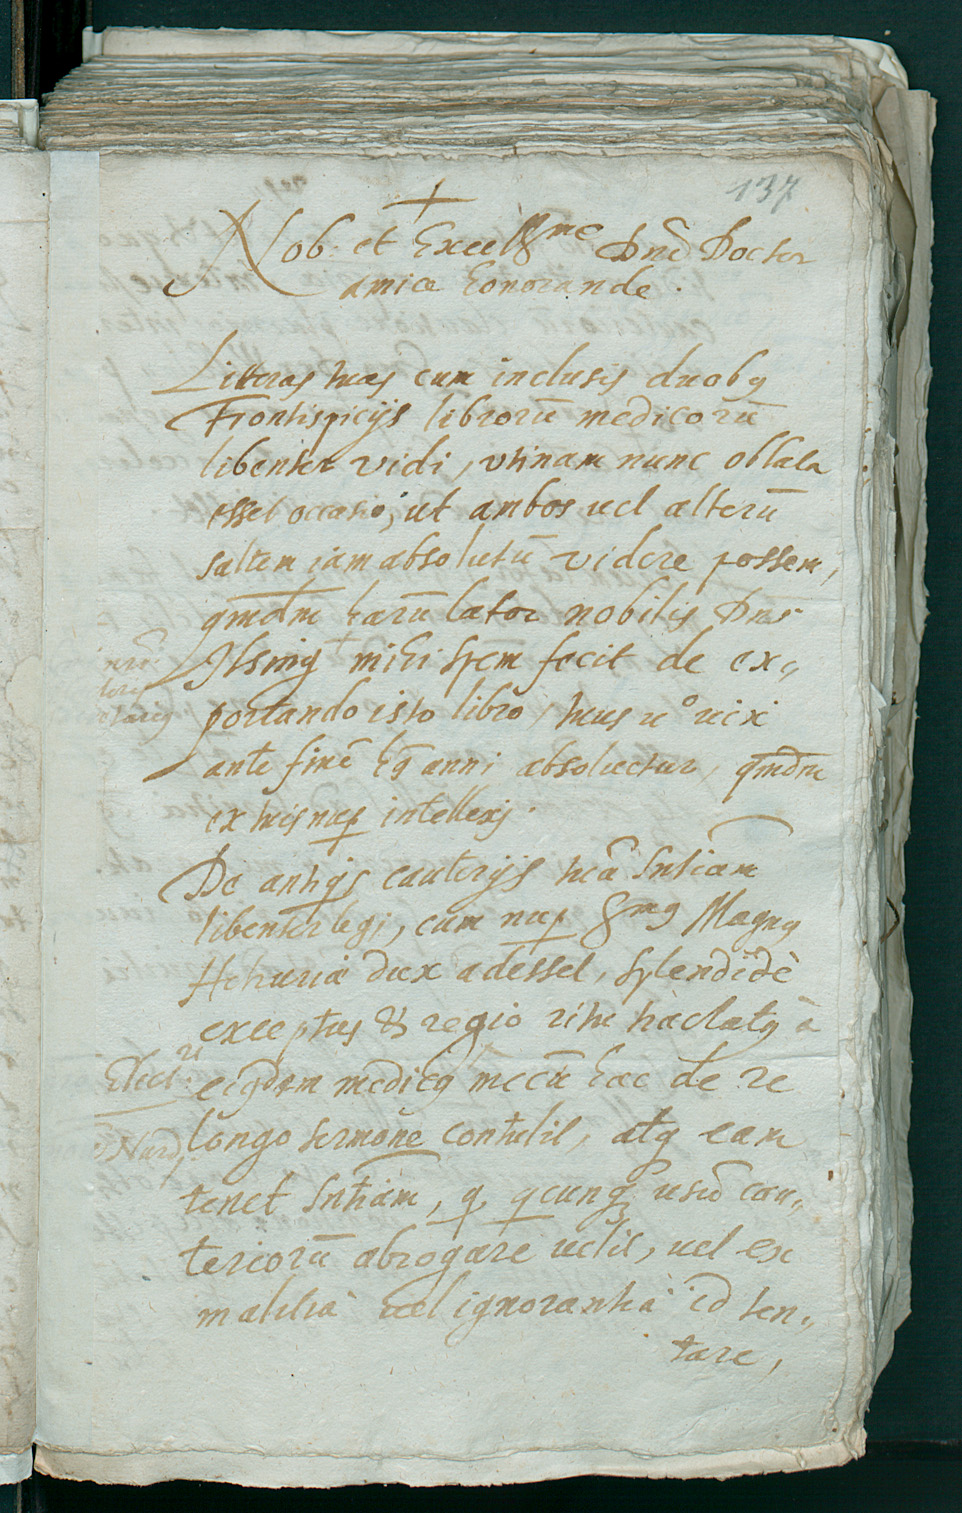 137
+
Nob. et Excell^me Dne Doctor
amice honorande.
Litteras tuas cum inclusis duobq
Frontispicijs librorū medicorū
libenter vidi, utinam nunc oblata
esset occasio, ut ambos vel alterū
saltem iam absolutū videre possem,
qmdm harū lator nobilis Dns
Ilsing mihi spem fecit de ex„
portando isto libro, tuus u° vix
ante finē hq anni absoluetur, qmdm
ex tuis nup intellexj.
De antiqis cauterijs tuā sntiam
libenter legj, cum nup Smg Magnq
Hetruriæ dux adesset, splendidè
exceptus & regio ritu tractatq à
Elect.
eiqdem medicq mecū hac de re
longo sermone contulit, atq eam
tenet sntiam, q qcunq usū cau„
teriorū abrogare velit, vel ex
malitia vel ignorantia id ten„
tare,